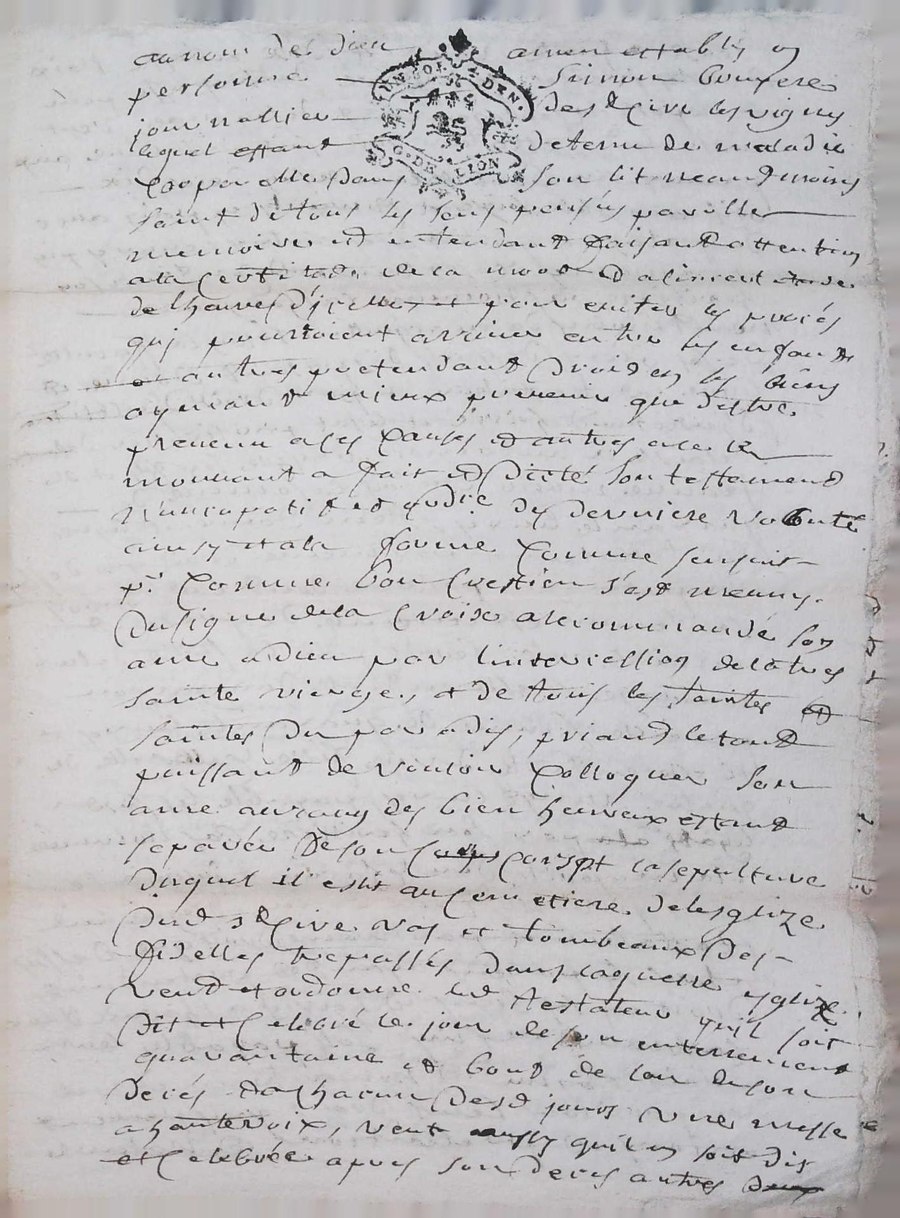 au nom de dieu amen estably en
personne Simon
UN SOL 4 DEN.
G. DE LION
journallier de st Cire les vignes
lequel estant detenu de maladie
Corporelle dans son lit neandmoins
saint de tous ses sens pensées parolle
memoire et entendant faisant attention
a la Certitude de la mort et
de lheure d'icelle et pour eviter les procés
qui pourroient arriver entre ses enfants
et autres pretendant droid en ses biens
aymant mieux prevenir que d'estre
prevenu a ces Causes et autres a ce le
mouvant a fait et dicté son testement
Nuncupatif et ordre de derniere volonté
ainsy et a la forme Comme sensuit
pr Comme bon Crestien s'est muny
du signe de la Croix a recommandé son
ame a dieu par lintercession de la tres
sainte vierge, et de touts les saintes et
saintes du paradis, priand le tout
puissant de vouloir Colloquer son
ame au rang des bien heureux estant
separée de son Corps Corps la sepulture
duquel il eslit au Cemetiere de lesglize
dud st Cire vas et tombeaux des
fidelles trepassés dans laquelle esglize
veud et ordonne led testateur qu'il soit
dit et Celebré le jour de son enterrement
quarantaine et bout de lan de son
decés et a Chacun desd jours une messe
a haute voix, veut aussy quil en soit dit
et Celebrée apres son deces autres deux